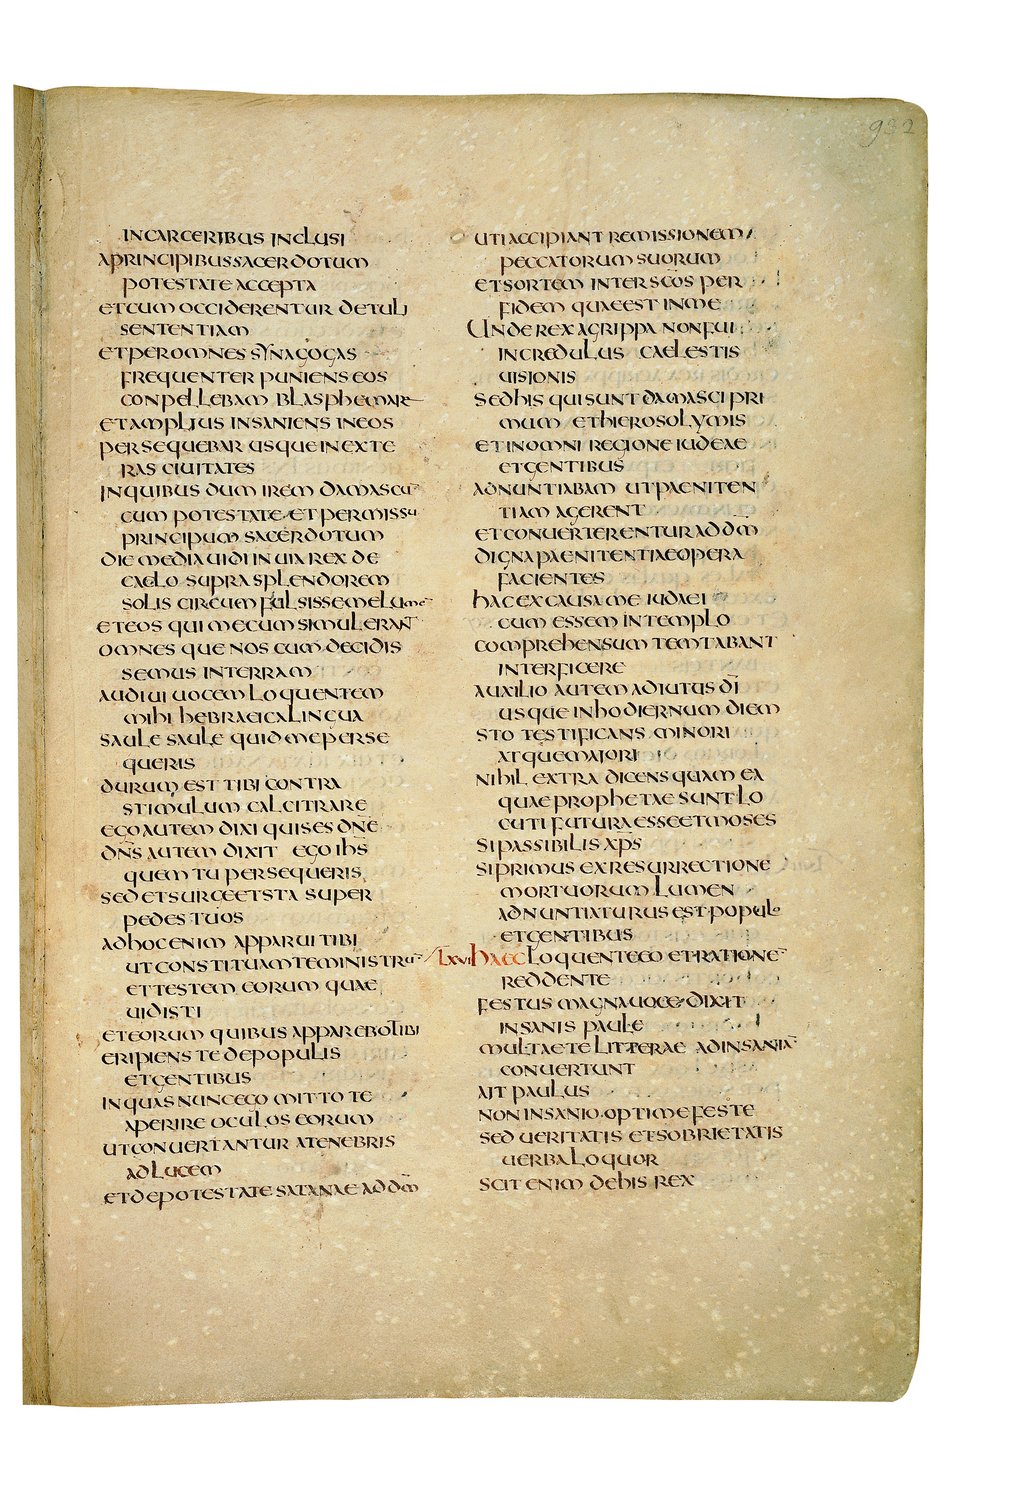 932
IN CARCERIBUS INCLUSI
A PRINCIPIBUS SACERDOTUM
POTESTATE ACCEPTA
ET CUM OCCIDERENTUR DETULI
SENTENTIAM
ET PER OMNES SYNAGOGAS
FREQUENTER PUNIENS EOS
CONPELLEBAM BLASPHEMARE
ET AMPLIUS INSANIENS IN EOS
PERSEQUEBAR USQUE IN EXTE
RAS CIUITATES
IN QUIBUS DUM IREM DAMASCU̅
CUM POTESTATE ET PERMISSU
PRINCIPUM SACERDOTUM
DIE MEDIA UIDI IN UIA REX DE
CAELO SUPRA SPLENDOREM
SOLIS CIRCUMFULSISSE ME LUME̅
ET EOS QUI MECUM SIMUL ERANT
OMNES QUE NOS CUM DECIDIS
SEMUS IN TERRAM
AUDIUI UOCEM LOQUENTEM
MIHI HEBRAEICA LINGUA
SAULE SAULE QUID ME PERSE
QUERIS
DURUM EST TIBI CONTRA
STIMULUM CALCITRARE
EGO AUTEM DIXI QUIS ES DN̅E
DN̅S AUTEM DIXIT EGO IH̅S
QUEM TU PERSEQUERIS
SED ET SURGE ET STA SUPER
PEDES TUOS
AD HOC ENIM APPARUI TIBI
UT CONSTITUAM TE MINISTRU̅
ET TESTEM EORUM QUAE
UIDISTI
ET EORUM QUIBUS APPAREBO TIBI
ERIPIENS TE DE POPULIS
ET GENTIBUS
IN QUAS NUNC EGO MITTO TE
APERIRE OCULOS EORUM
UT CONUERTANTUR A TENEBRIS
AD LUCEM
ET DE POTESTATE SATANAE AD DM̅
UTI ACCIPIANT REMISSIONEM
PECCATORUM SUORUM
ET SORTEM INTER SC̅OS PER
FIDEM QUAE EST IN ME
UNDE REX AGRIPPA NON FUI
INCREDULUS CAELESTIS
UISIONIS
SED HIS QUI SUNT DAMASCI PRI
MUM ET HIEROSOLYMIS
ET IN OMNI REGIONE IUDEAE
ET GENTIBUS
ADNUNTIABAM UT PAENITEN
TIAM AGERENT
ET CONUERTERENTUR AD DM̅
DIGNA PAENITENTIAE OPERA
FACIENTES
HAC EX CAUSA ME IUDAEI
CUM ESSEM IN TEMPLO
COMPREHENSUM TEMTABANT
INTERFICERE
AUXILIO AUTEM ADIUTUS DI̅
USQUE IN HODIERNUM DIEM
STO TESTIFICANS MINORI
ATQUE MAIORI
NIHIL EXTRA DICENS QUAM EA
QUAE PROPHETAE SUNT LO
CUTI FUTURA ESSE ET MOSES
SI PASSIBILIS XP̅S
SI PRIMUS EX RESURRECTIONE
MORTUORUM LUMEN
ADNUNTIATURUS EST POPULO
ET GENTIBUS
LXVI HAEC LOQUENTE EO ET RATIONE̅
REDDENTE
FESTUS MAGNA UOCE DIXIT
INSANIS PAULE
MULTAE TE LITTERAE AD INSANIA̅
CONUERTUNT
AIT PAULUS
NON INSANIO OPTIME FESTE
SED UERITATIS ET SOBRIETATIS
UERBA LOQUOR
SCIT ENIM DE HIS REX